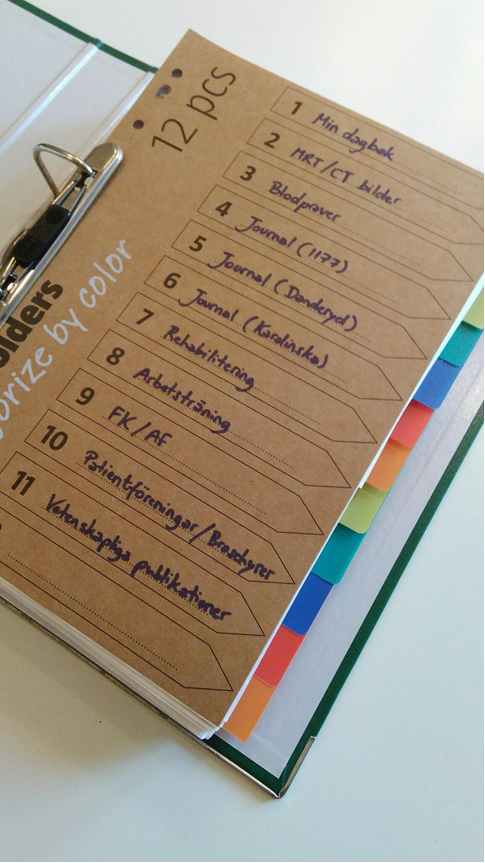 12 pcs
1 Min dagbok
2 MRT/CT bilder
3 Blodprover
4 Journal (1177)
5 Journal (Danderyd)
6 Journal (Karolinska)
7 Rehabilitering
8 Arbetsträning
9 FK/AF
10 Patientföreningar/Broschyrer
11 Vetenskapliga publikationer
by color